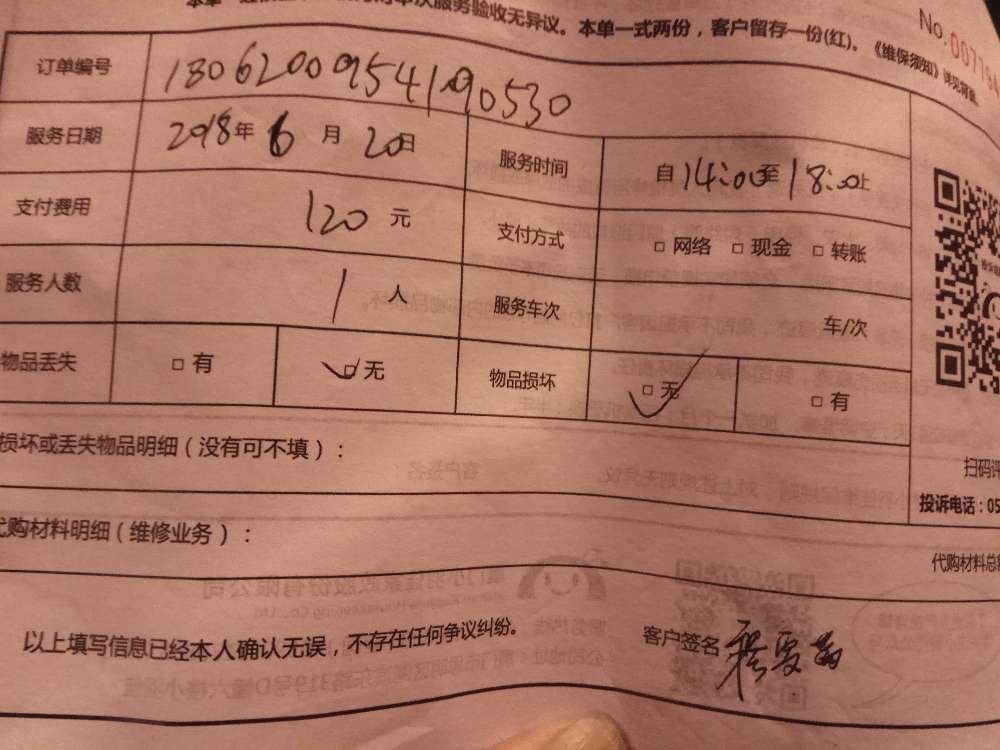 本次服务验收无异议。本单一式两份，客户留存一份(红)。《维保须知》详见背面。
No.
订单编号 18062000954190530
服务日期 2018年 6 月 20日 服务时间 自 14:00 至 18:00 止
支付费用 120 元 支付方式 □ 网络 □ 现金 □ 转账
服务人数 1 人 服务车次 车/次
物品丢失 □ 有 □ 无 物品损坏 □ 无 □ 有
损坏或丢失物品明细（没有可不填）：
扫码评
投诉电话：05
代购材料明细（维修业务）：
代购材料总
以上填写信息已经本人确认无误，不存在任何争议纠纷。
客户签名